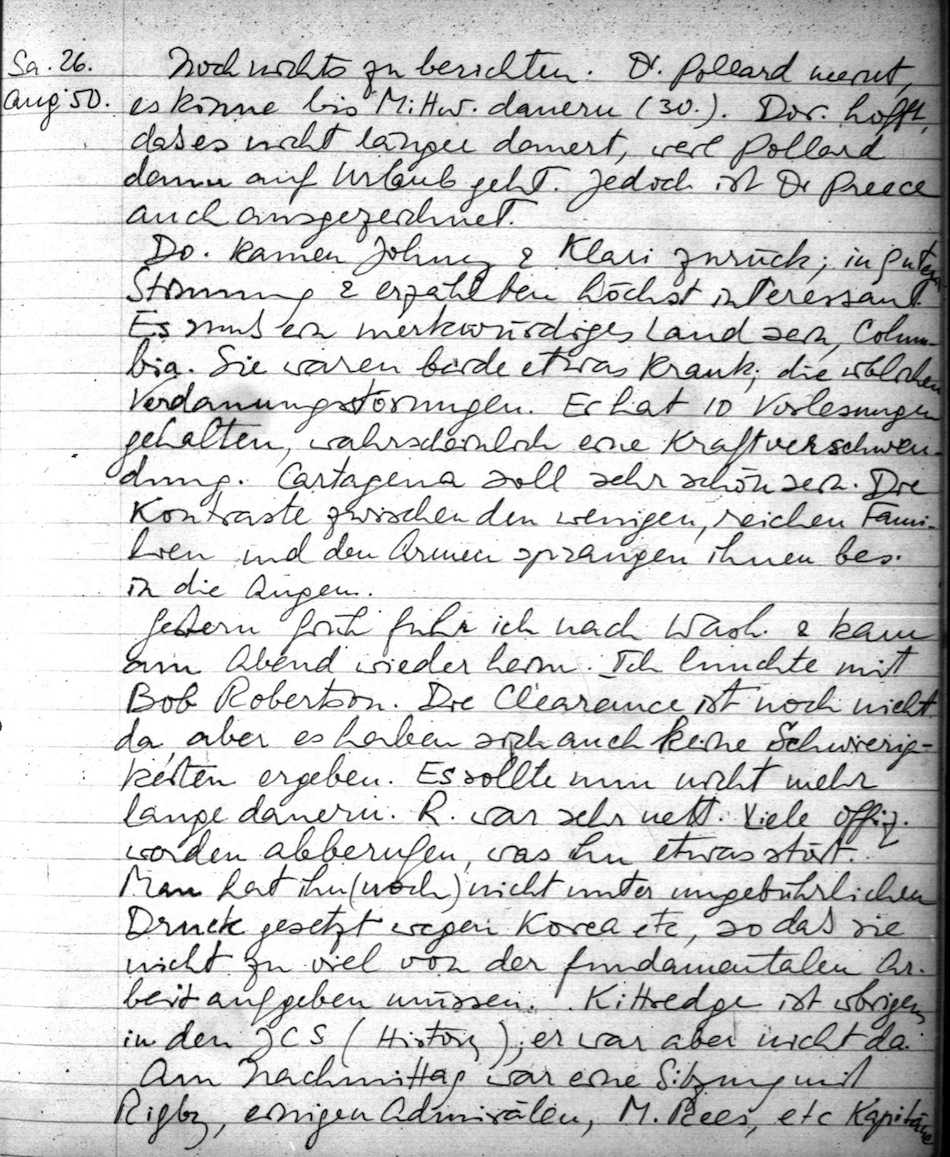 Sa. 26.
Aug 50.
Noch nichts zu berichten. Dr. Pollard meint,
es könne bis Mittw. dauern (30.). Dor. hofft,
dass es nicht länger dauert, weil Pollard
dann auf Urlaub geht. Jedoch ist Dr Preece
auch ausgezeichnet.
Do. kamen Johny & Klari zurück; in guter
Stimmung & erzählten höchst interessant.
Es muss ein merkwürdiges Land sein, Colum-
bia. Sie waren beide etwas krank; die üblichen
Verdauungsstörungen. Er hat 10 Vorlesungen
gehalten, wahrscheinlich eine Kraftverschwen-
dung. Cartagena soll sehr schön sein. Die
Kontraste zwischen den wenigen, reichen Fami-
lien und den Armen sprangen ihnen bes.
in die Augen.
Gestern früh fuhr ich nach Wash. & kam
am Abend wieder heim. Ich lunchte mit
Bob Robertson. Die Clearance ist noch nicht
da, aber es haben sich auch keine Schwierig-
keiten ergeben. Es sollte nun nicht mehr
lange dauern. R. war sehr nett. Viele Offiz.
worden abberufen, was ihn etwas stört.
Man hat ihn (noch) nicht unter ungebührlichen
Druck gesetzt wegen Korea etc, so dass sie
nicht zu viel von der fundamentalen Ar-
beit aufgeben müssen. Kittredge ist übrigens
in den JCS (History), er war aber nicht da.
Am Nachmittag war eine Sitzung mit
Rigby, einigen Admirälen, M. Rees, etc Kapitäne